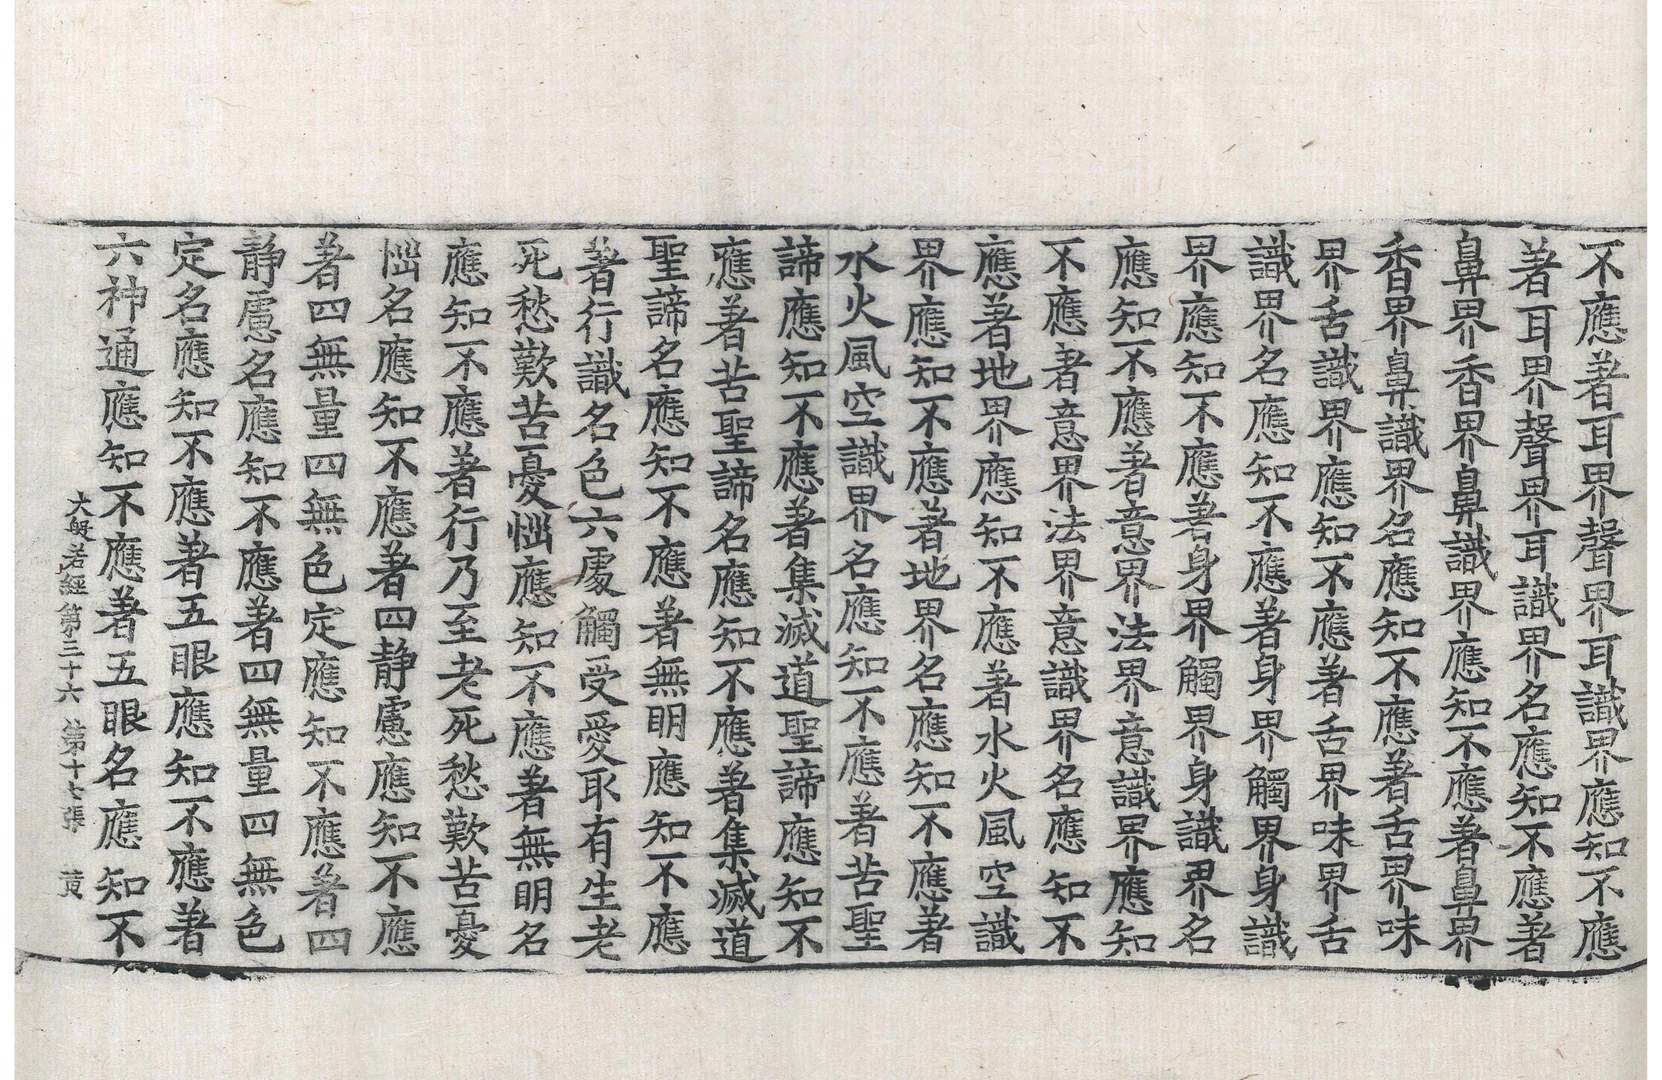 不應著耳界聲界耳識界應知不應
著耳界聲界耳識界名應知不應著
鼻界香界鼻識界應知不應著鼻界
香界鼻識界名應知不應著舌界味
界舌識界應知不應著舌界味界舌
識界名應知不應著身界觸界身識
界應知不應著身界觸界身識界名
應知不應著意界法界意識界應知
不應著意界法界意識界名應知不
應著地界應知不應著水火風空識
界應知不應著地界名應知不應著
水火風空識界名應知不應著苦聖
諦應知不應著集滅道聖諦應知不
應著苦聖諦名應知不應著集滅道
聖諦名應知不應著無明應知不應
著行識名色六處觸受愛取有生老
死愁歎苦憂惱應知不應著無明名
應知不應著行乃至老死愁歎苦憂
惱名應知不應著四静慮應知不應
著四無量四無色定應知不應著四
静慮名應知不應著四無量四無色
定名應知不應著五眼應知不應著
六神通應知不應著五眼名應知不
大般若經第三十六 第十七張 黄